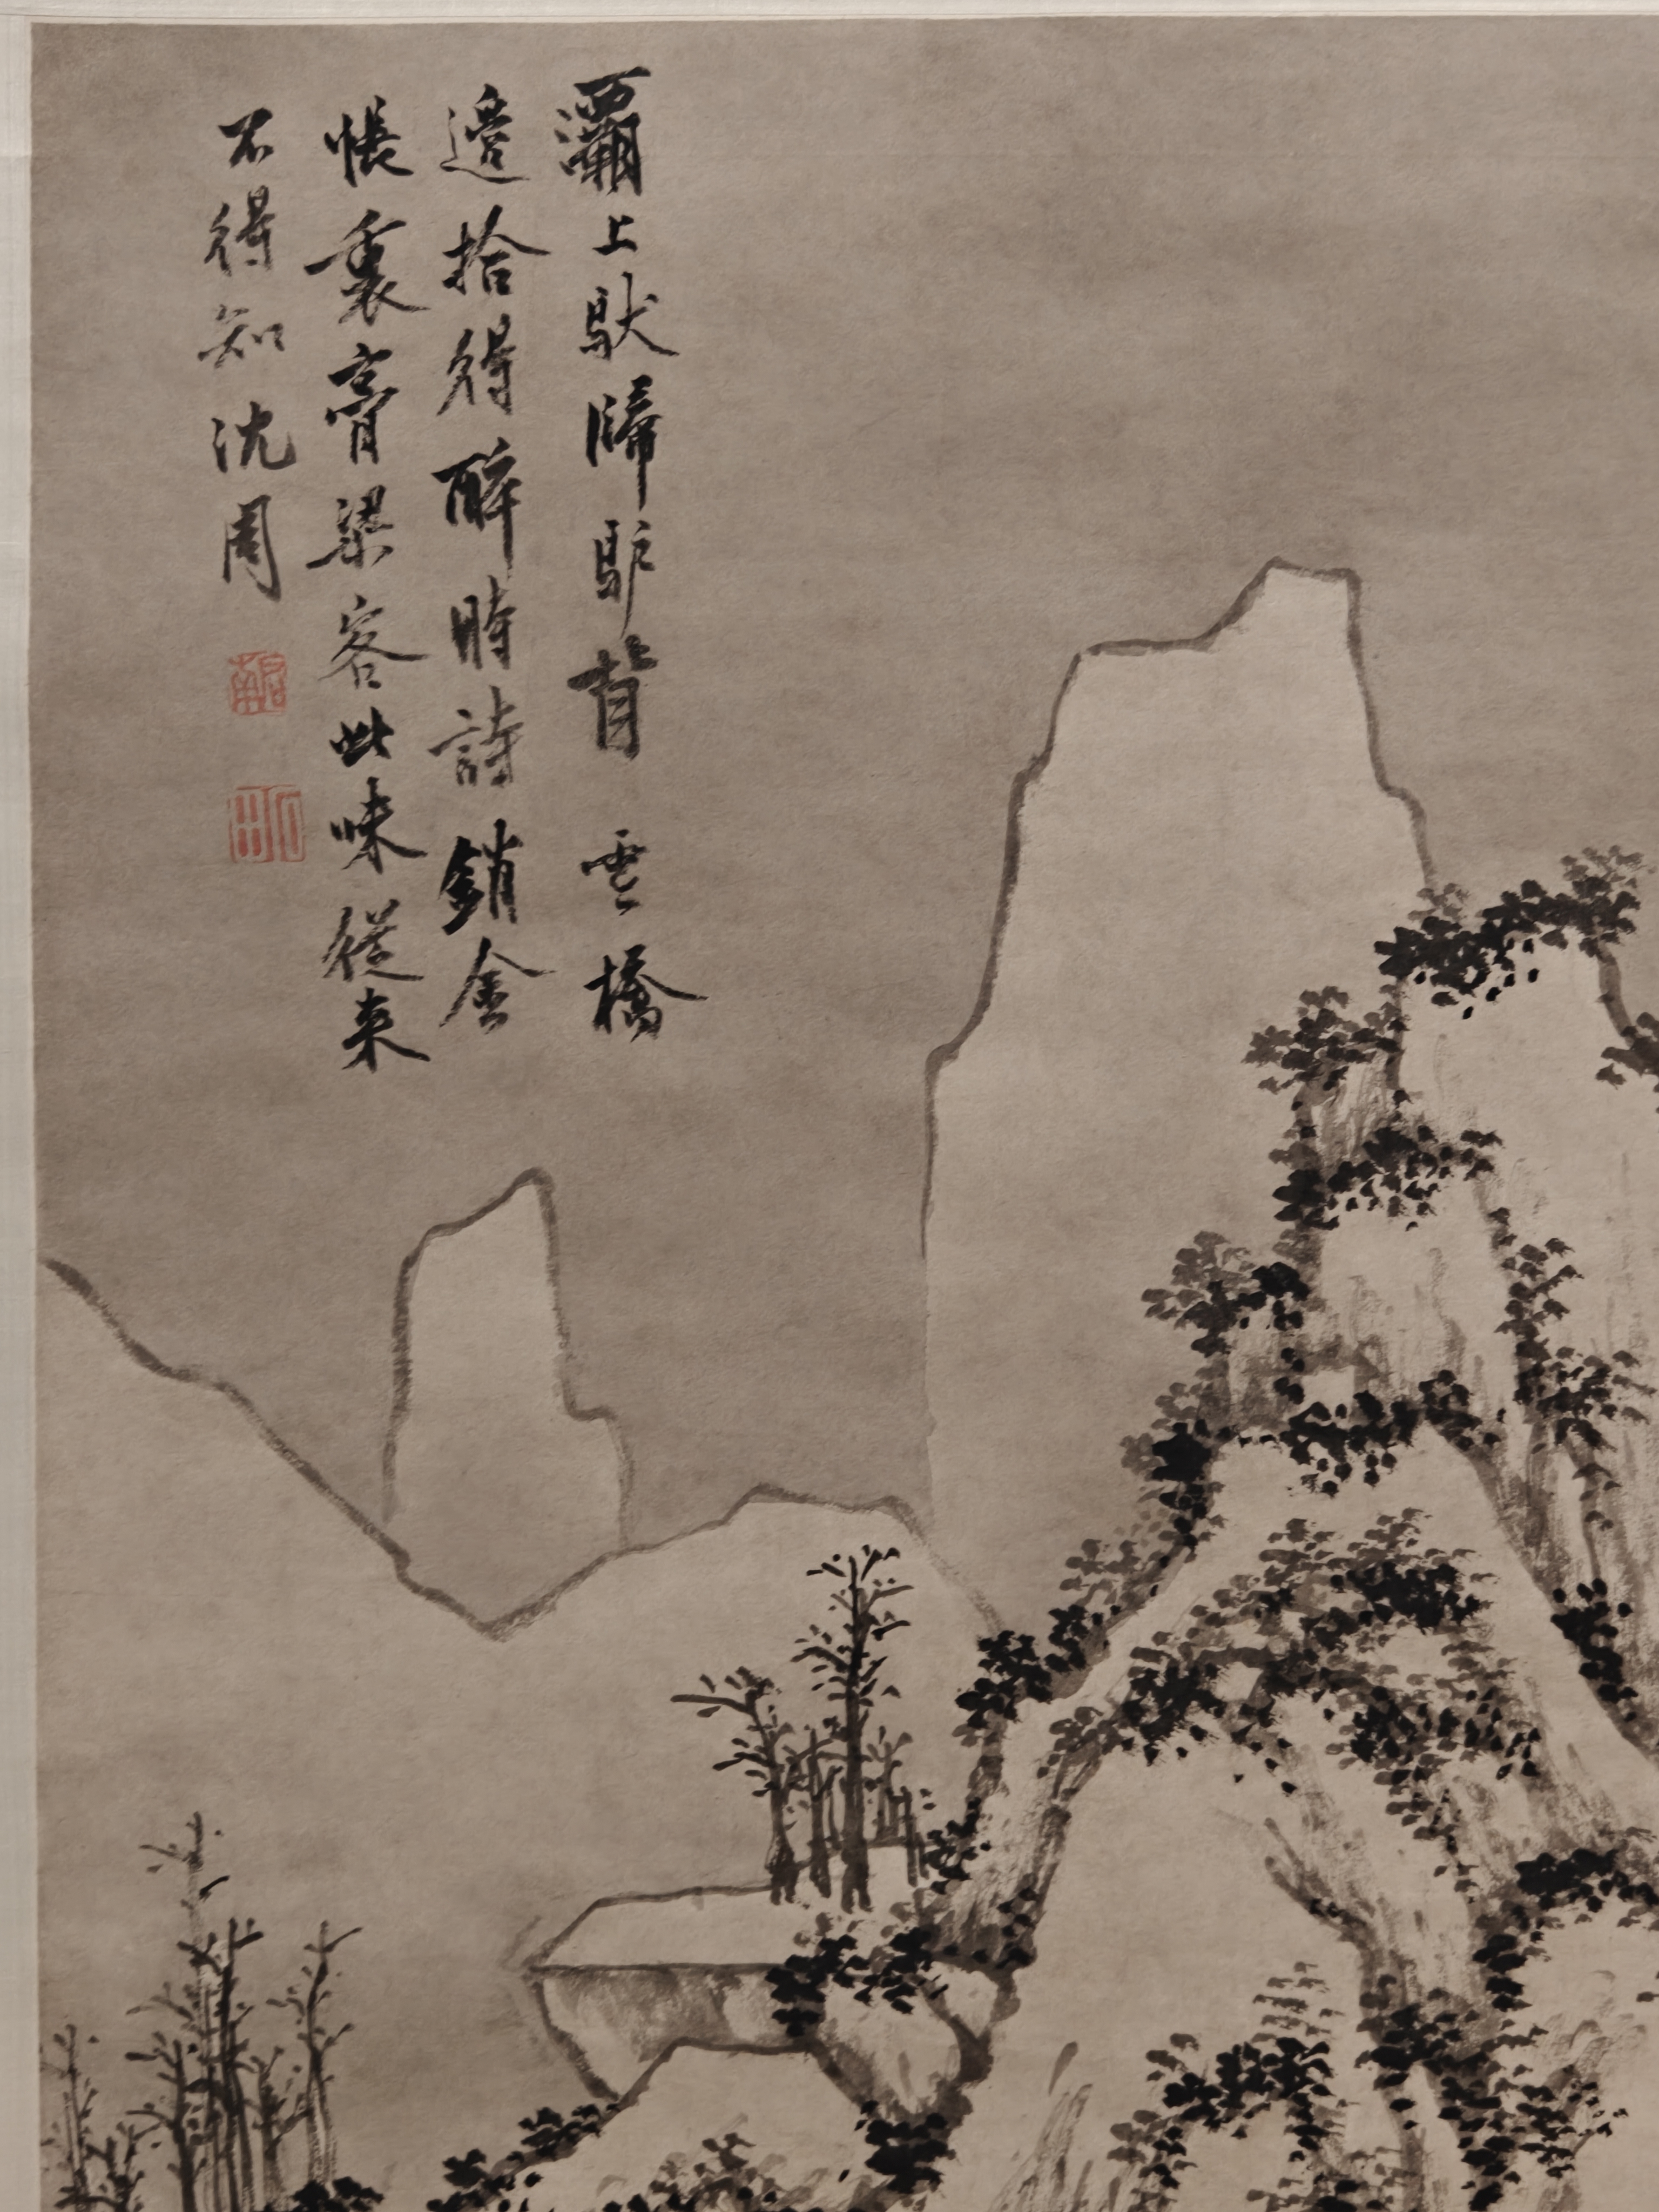 灞上䭾歸驴背雪橋
邊拾得醉時詩銷金
帳裏膏粱客此味從来
不得知沈周
啓南